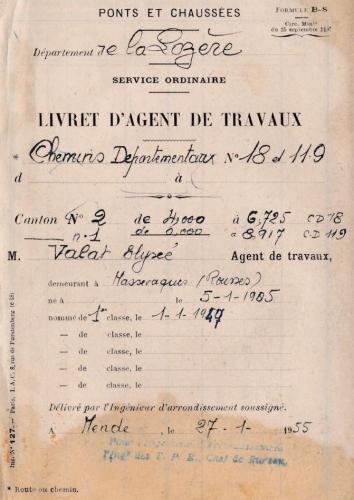 PONTS ET CHAUSSÉES
FORMULE B-8
Circ. Minlle
du 25 septembre
Département de la Lozère
SERVICE ORDINAIRE
LIVRET D'AGENT DE TRAVAUX
* Chemins Départementaux N° 18 et 119
d à
Canton N° 2 de 4,000 à 6,725 CD 18
n° 1 de 0,000 à 8,917 CD 119
M. Valat Elysée Agent de travaux,
demeurant à Masseraques (Rousses)
né à le 5-1-1905
nommé de 1re classe, le 1-1-1947
— de classe, le
— de classe, le
— de classe, le
— de classe, le
— de classe, le
Délivré par l'Ingénieur d'arrondissement soussigné.
A Mende le 27-1-1955
l'Ingr des T. P. E., Chef de Bureau,
* Route ou chemin.
Imp. N° 127. — Paris. I. A. C. 8, rue de Furstenberg (e 10)